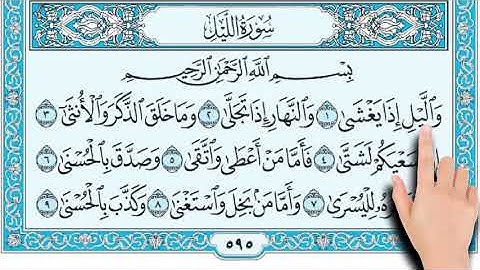 سُورَةُ اللَّيْلِ
بِسْمِ اللَّهِ الرَّحْمَٰنِ الرَّحِيمِ
وَاللَّيْلِ إِذَا يَغْشَىٰ ١ وَالنَّهَارِ إِذَا تَجَلَّىٰ ٢ وَمَا خَلَقَ الذَّكَرَ وَالْأُنثَىٰ ٣
سَعْيَكُمْ لَشَتَّىٰ ٤ فَأَمَّا مَنْ أَعْطَىٰ وَاتَّقَىٰ ٥ وَصَدَّقَ بِالْحُسْنَىٰ ٦
لِلْيُسْرَىٰ ٧ وَأَمَّا مَنْ بَخِلَ وَاسْتَغْنَىٰ ٨ وَكَذَّبَ بِالْحُسْنَىٰ ٩
٥٩٥